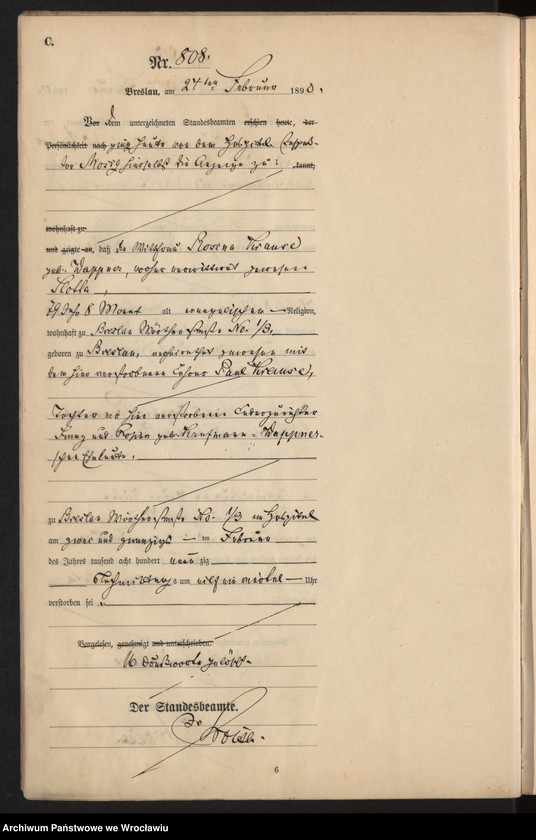 C.
Nr. 808.
Breslau, am 24ten Februar 1890.
Vor dem unterzeichneten Standesbeamten erschien heute, der
Persönlichkeit nach ging heute von dem Hospital Inspek-
tor Mosig hierselbst die Anzeige zu: kannt,
wohnhaft zu
und zeigte an, daß die Wittfrau Rosina Krause
geb. Wappner, vorher verwittwet gewesene
Kotta,
79 Jahr 8 Monat alt evangelischer Religion,
wohnhaft zu Breslau No. 1/3,
geboren zu Breslau, verheirathet gewesen mit
dem hier verstorbenen Paul Krause,
Tochter der hier verstorbenen
und geb. Kaufmann = Wappner-
schen Eheleute.
zu Breslau No. 1/3 im Hospital
am zwei und zwanzigsten Februar
des Jahres tausend acht hundert neunzig
Nachmittags um elf ein viertel Uhr
verstorben sei.
Vorgelesen, genehmigt und unterschrieben.
16 Druckworte gelöscht.
Der Standesbeamte.
6
Archiwum Państwowe we Wrocławiu